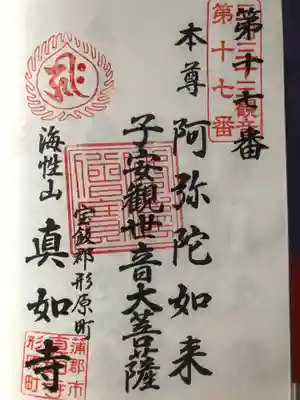 第十七番
第十七番
本尊 阿弥陀如来
子安觀世音大菩薩
宝飯郡形原町
海性山 真如寺
蒲郡市
真如寺
形原町